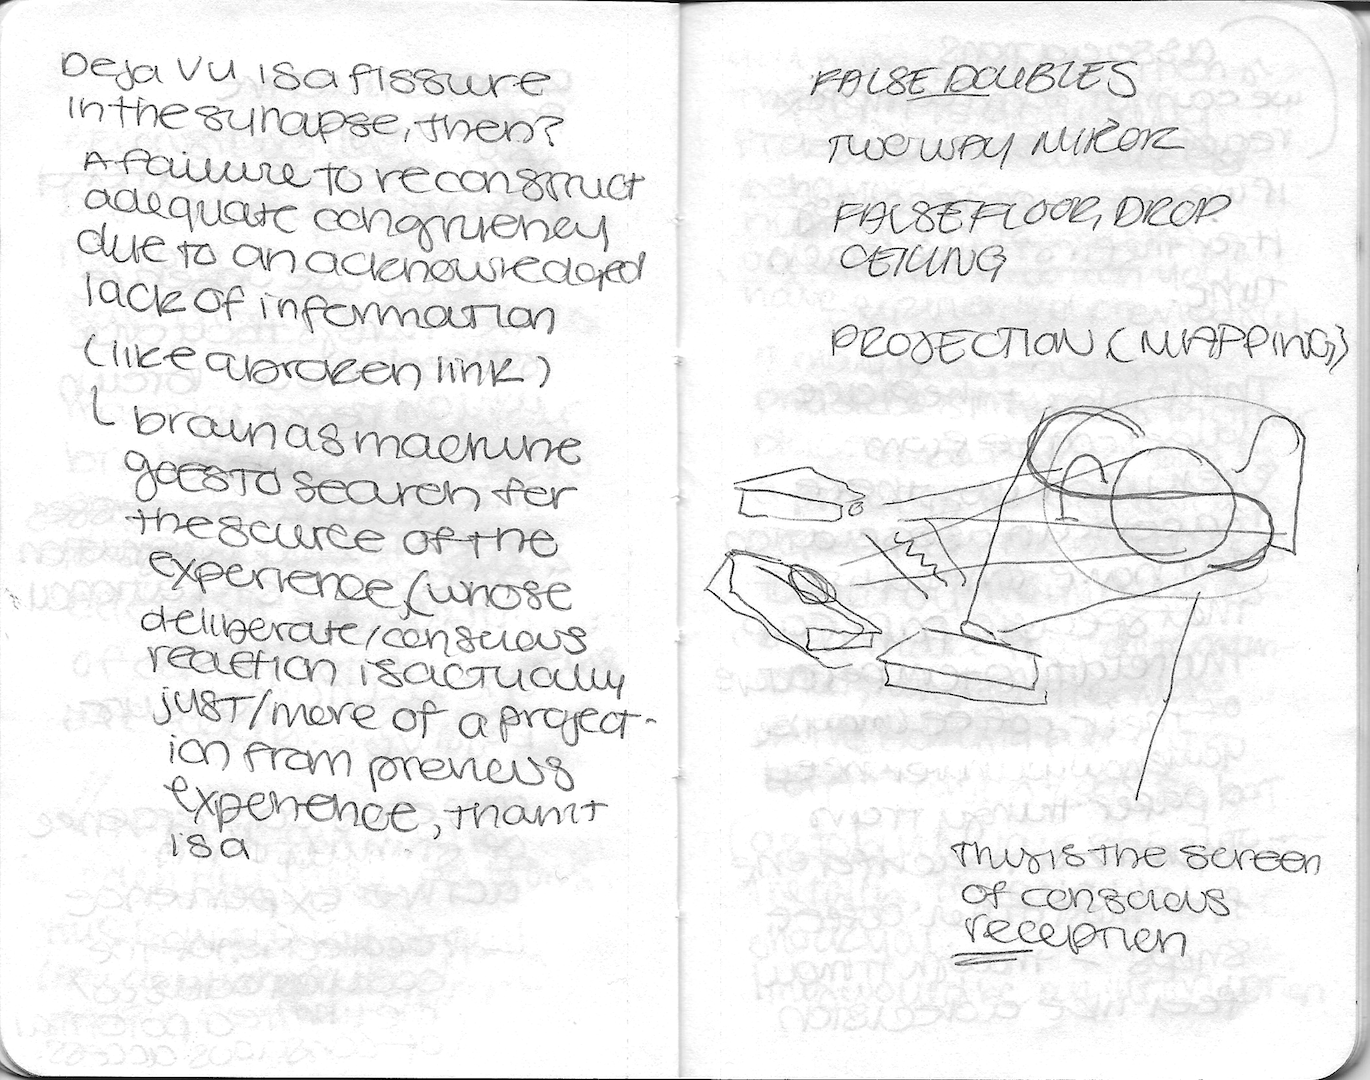 Deja vu is a fissure
in the synapse, then?
A failure to reconstruct
adequate congruency
due to an acknowledged
lack of information
(like a broken link)
└ brain as machine
goes to search for
the source of the
experience, (whose
deliberate/conscious
reaction is actually
just/more of a project-
ion from previous
experience, than it
is a
FALSE DOUBLES
TWO WAY MIROR
FALSE FLOOR, DROP
CEILING
PROJECTION (MAPPING)
This is the screen
of conscious
reception